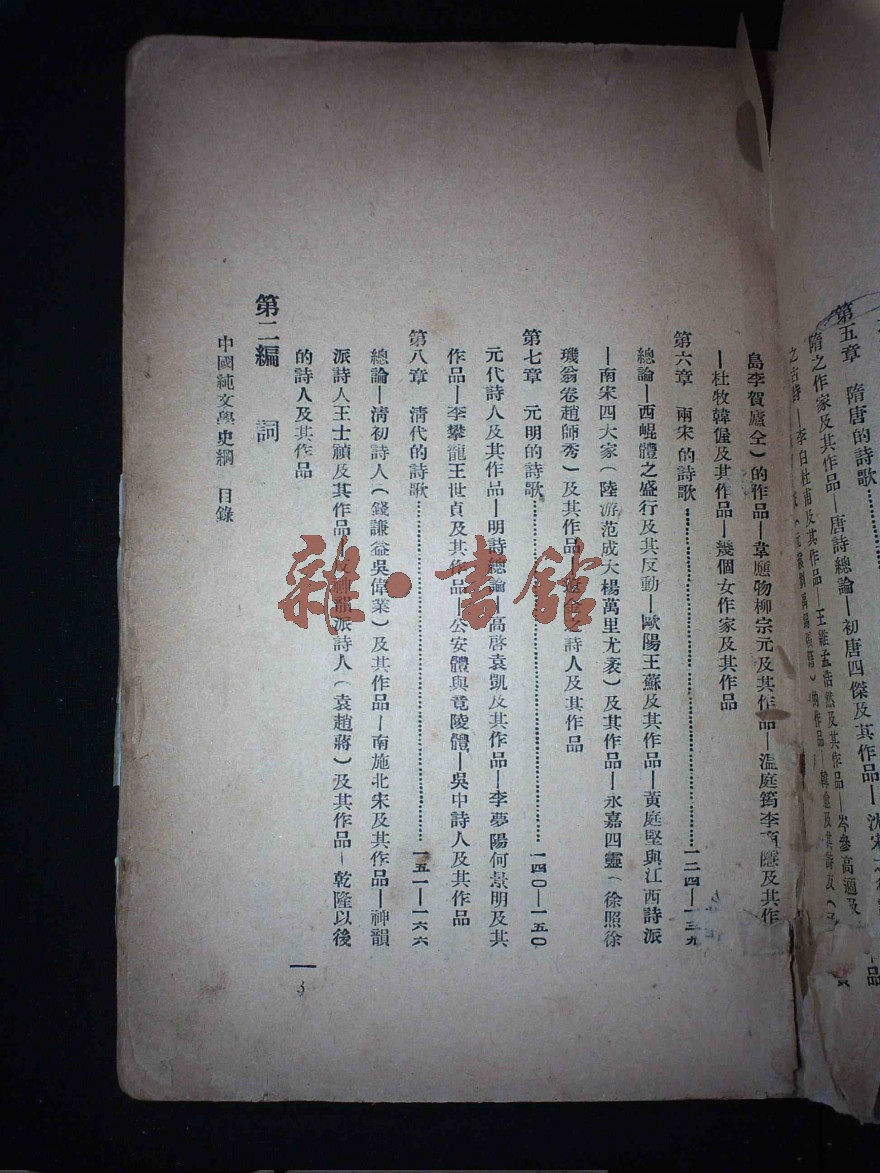 第五章　隋唐的詩歌
隋之作家及其作品—唐詩總論—初唐四傑及其作品—沈宋之
之古詩—李白杜甫及其作品—王維孟浩然及其作品—岑參高適及
的作品—韓愈及其
島李賀盧仝）的作品—韋應物柳宗元及其作品—溫庭筠李商隱及其作
—杜牧韓偓及其作品—幾個女作家及其作品
第六章　兩宋的詩歌……一二四—一三九
總論—西崐體之盛行及其反動—歐陽王蘇及其作品—黃庭堅與江西詩派
—南宋四大家（陸游范成大楊萬里尤袤）及其作品—永嘉四靈（徐照徐
璣翁卷趙師秀）及其作品—詩人及其作品
第七章　元明的詩歌……一四〇—一五〇
元代詩人及其作品—明詩總論—高啓袁凱及其作品—李夢陽何景明及其
作品—李攀龍王世貞及其作品—公安體與竟陵體—吳中詩人及其作品
第八章　清代的詩歌……一五一—一六六
總論—清初詩人（錢謙益吳偉業）及其作品—南施北宋及其作品—神韻
派詩人王士禎及其作品—反神韻派詩人（袁趙蔣）及其作品—乾隆以後
的詩人及其作品
第二編　詞
中國純文學史綱　目錄
雜·書館